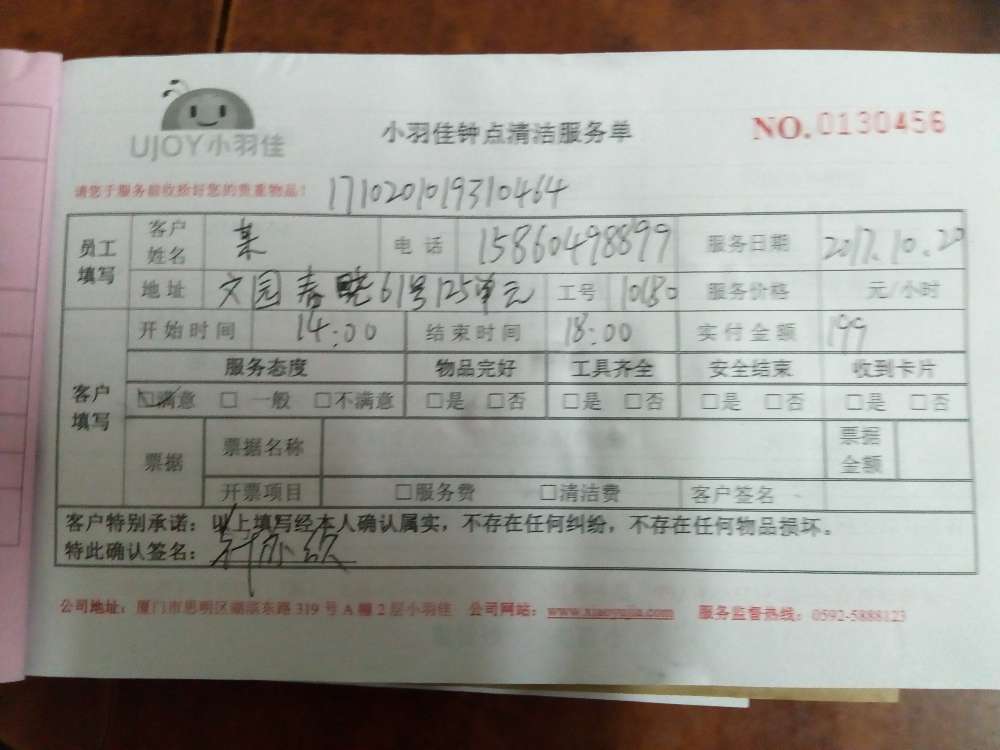 UJOY小羽佳
小羽佳钟点清洁服务单
NO.0130456
请您于服务前收捡好您的贵重物品！
1710201019310464
员工填写 客户姓名 电话 15860498899 服务日期 2017.10.20
地址 文园春晓61号125单元 工号 10680 服务价格 元/小时
客户填写 开始时间 14:00 结束时间 18:00 实付金额 199
服务态度 物品完好 工具齐全 安全结束 收到卡片
☑满意 □一般 □不满意 □是 □否 □是 □否 □是 □否 □是 □否
票据 票据名称 票据金额
开票项目 □服务费 □清洁费 客户签名
客户特别承诺：以上填写经本人确认属实，不存在任何纠纷，不存在任何物品损坏。
特此确认签名：
公司地址：厦门市思明区湖滨东路 319 号 A 幢 2 层小羽佳 公司网站：www.xiaoyujia.com 服务监督热线：0592-5888123